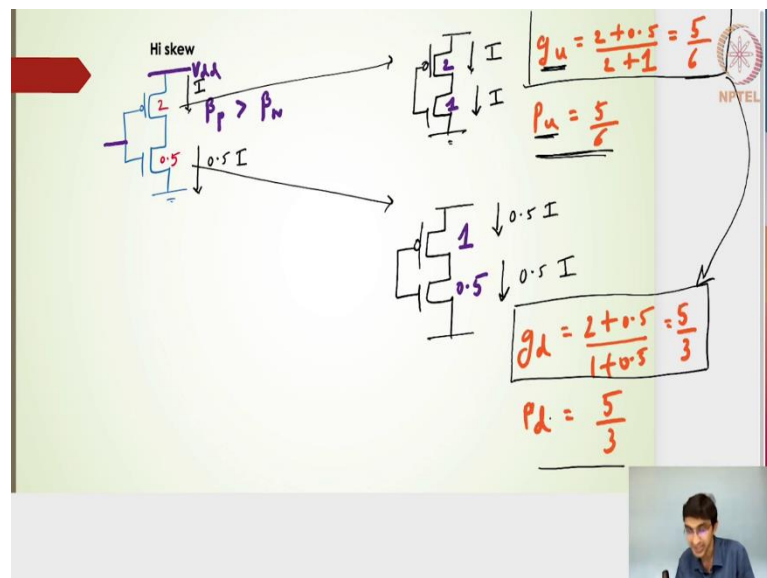 Hi skew
Vdd
I
2
βp > βN
0.5
0.5 I
2
I
1
I
gu = 2+0.5 / 2+1 = 5/6
Pu = 5/6
NPTEL
1
0.5 I
0.5
0.5 I
gd = 2+0.5 / 1+0.5 = 5/3
Pd = 5/3